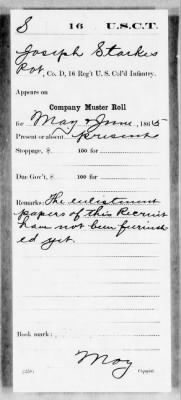 S 16 U.S.C.T.
Joseph Starkes
Pvt, Co. D, 16 Reg't U. S. Col'd Infantry.
Appears on
Company Muster Roll
for May & June, 1865
Present or absent present
Stoppage, $ 100 for
Due Gov't, $ 100 for
Remarks: The enlistment
papers of this Recruit
have not been furnish
ed yet.
Book mark:
May
(358) Copyist.